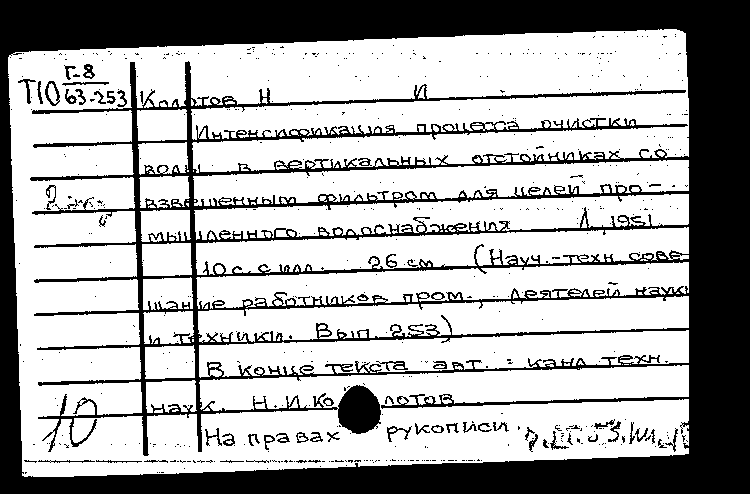 Г-8
Т10 63-253
Колотов, Н И
Интенсификация процесса очистки
воды в вертикальных отстойниках со
2 экз.
взвешенным фильтром для целей про-
мышленного водоснабжения Л, 1951
10 с. с илл. 26 см. (Науч.-техн. сове-
щание работников пром., деятелей науки
и техники. Вып. 253)
В конце текста авт.: канд. техн.
наук. Н.И. Колотов
10
На правах рукописи.